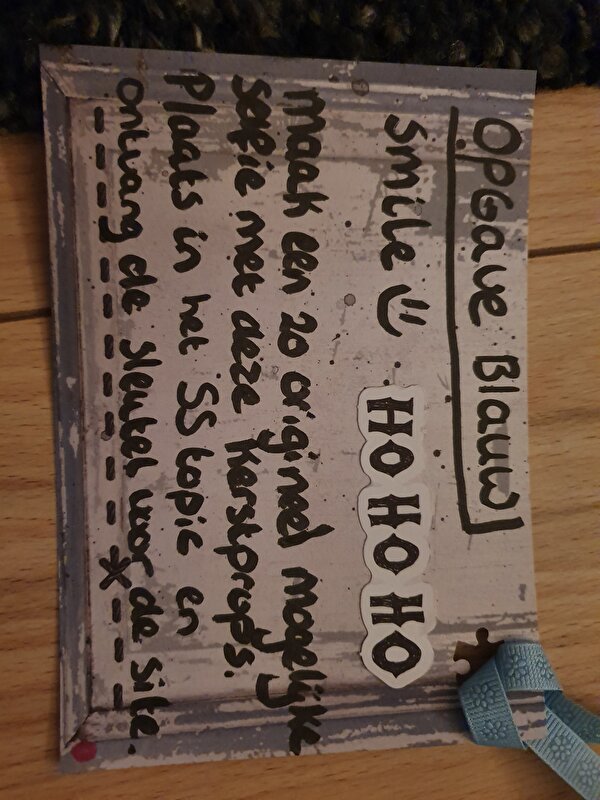 OPGave Blauw
Smile
HO HO HO
maak een zo origineel mogelijke
selfie met deze Kerstprops.
Plaats in het SS topic en
ontvang de sleutel voor de site.